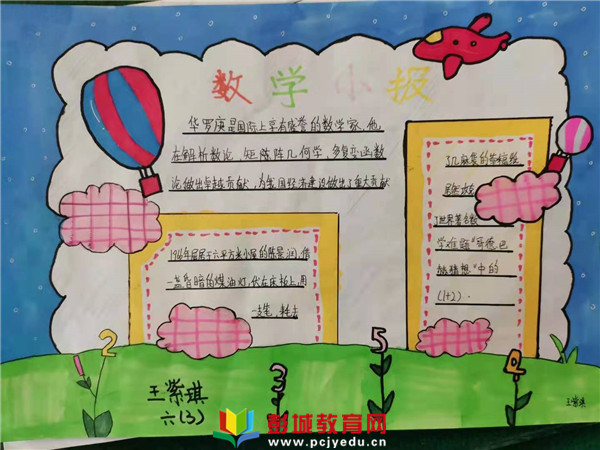 数学小报
华罗庚是国际上享有盛誉的数学家,他
在解析数论、矩阵几何学、多复变函数
论做出卓越贡献,为我国经济建设做出了重大贡献
1966年屈居于六平方米小屋的陈景润,借
一盏昏暗的煤油灯,伏在床板上,用
一支笔,耗去
了几麻袋的草稿纸
居然攻克
了世界著名数
学难题“哥德巴
赫猜想”中的
(1+2).
1
2
3
5
4
王紫琪
六(3)
王紫琪
彭城教育网
www.pcjyedu.cn